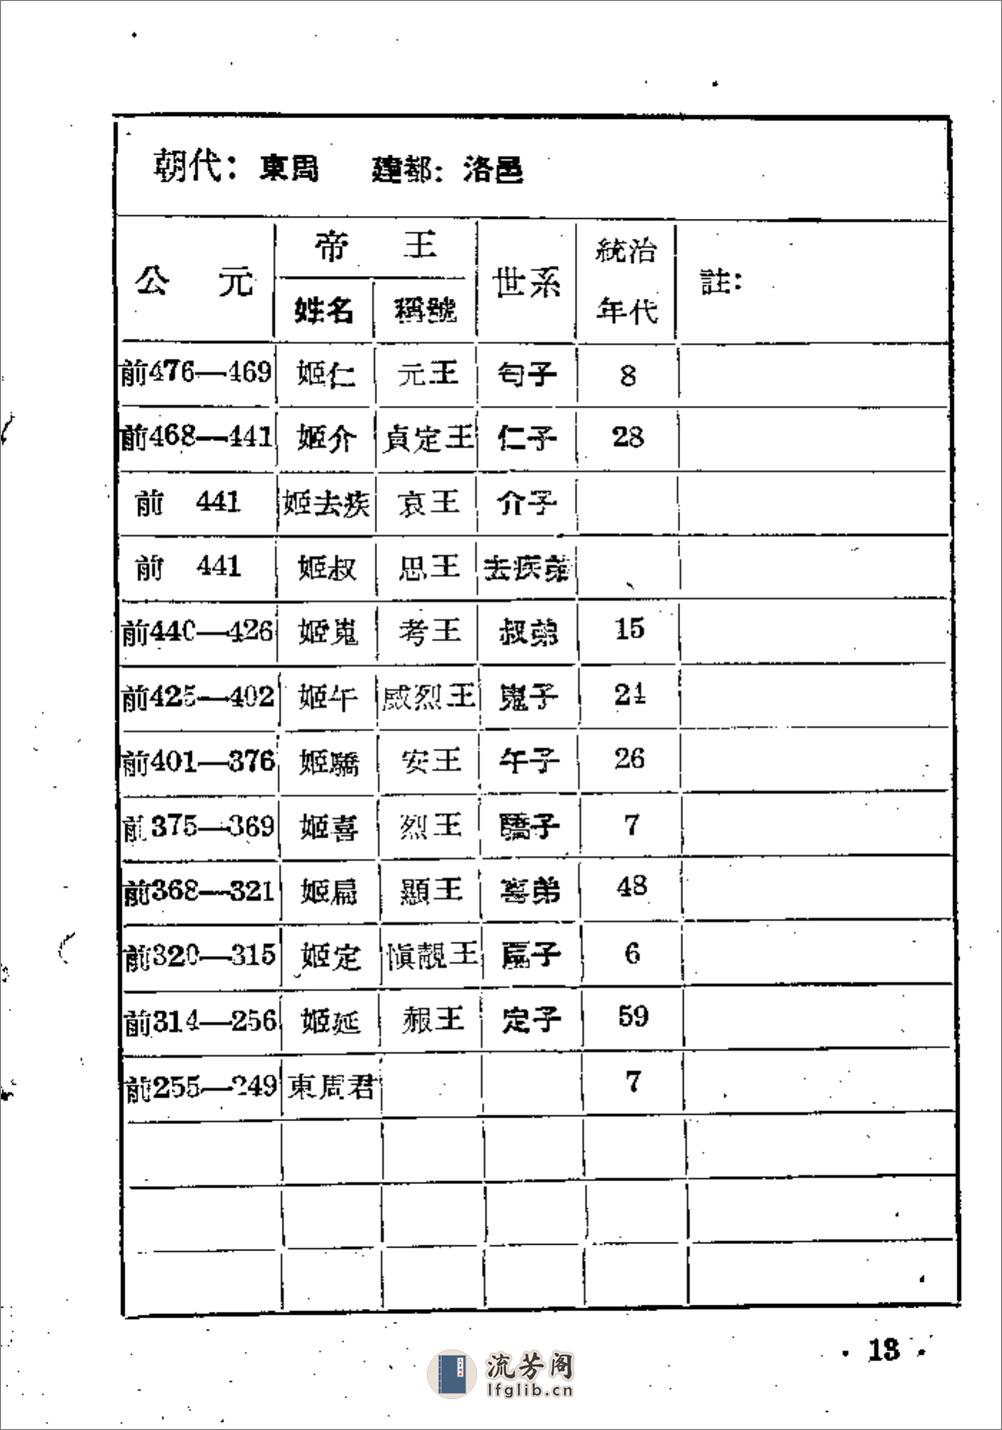 朝代：東周 建都：洛邑
公元 帝王 世系 統治年代 註：
姓名 稱號
前476—469 姬仁 元王 匄子 8
前468—441 姬介 貞定王 仁子 28
前 441 姬去疾 哀王 介子
前 441 姬叔 思王 去疾弟
前440—426 姬嵬 考王 叔弟 15
前425—402 姬午 威烈王 嵬子 24
前401—376 姬驕 安王 午子 26
前375—369 姬喜 烈王 驕子 7
前368—321 姬扁 顯王 喜弟 48
前320—315 姬定 愼靚王 扁子 6
前314—256 姬延 赧王 定子 59
前255—249 東周君 7
· 13 ·
流芳阁
lfglib.cn